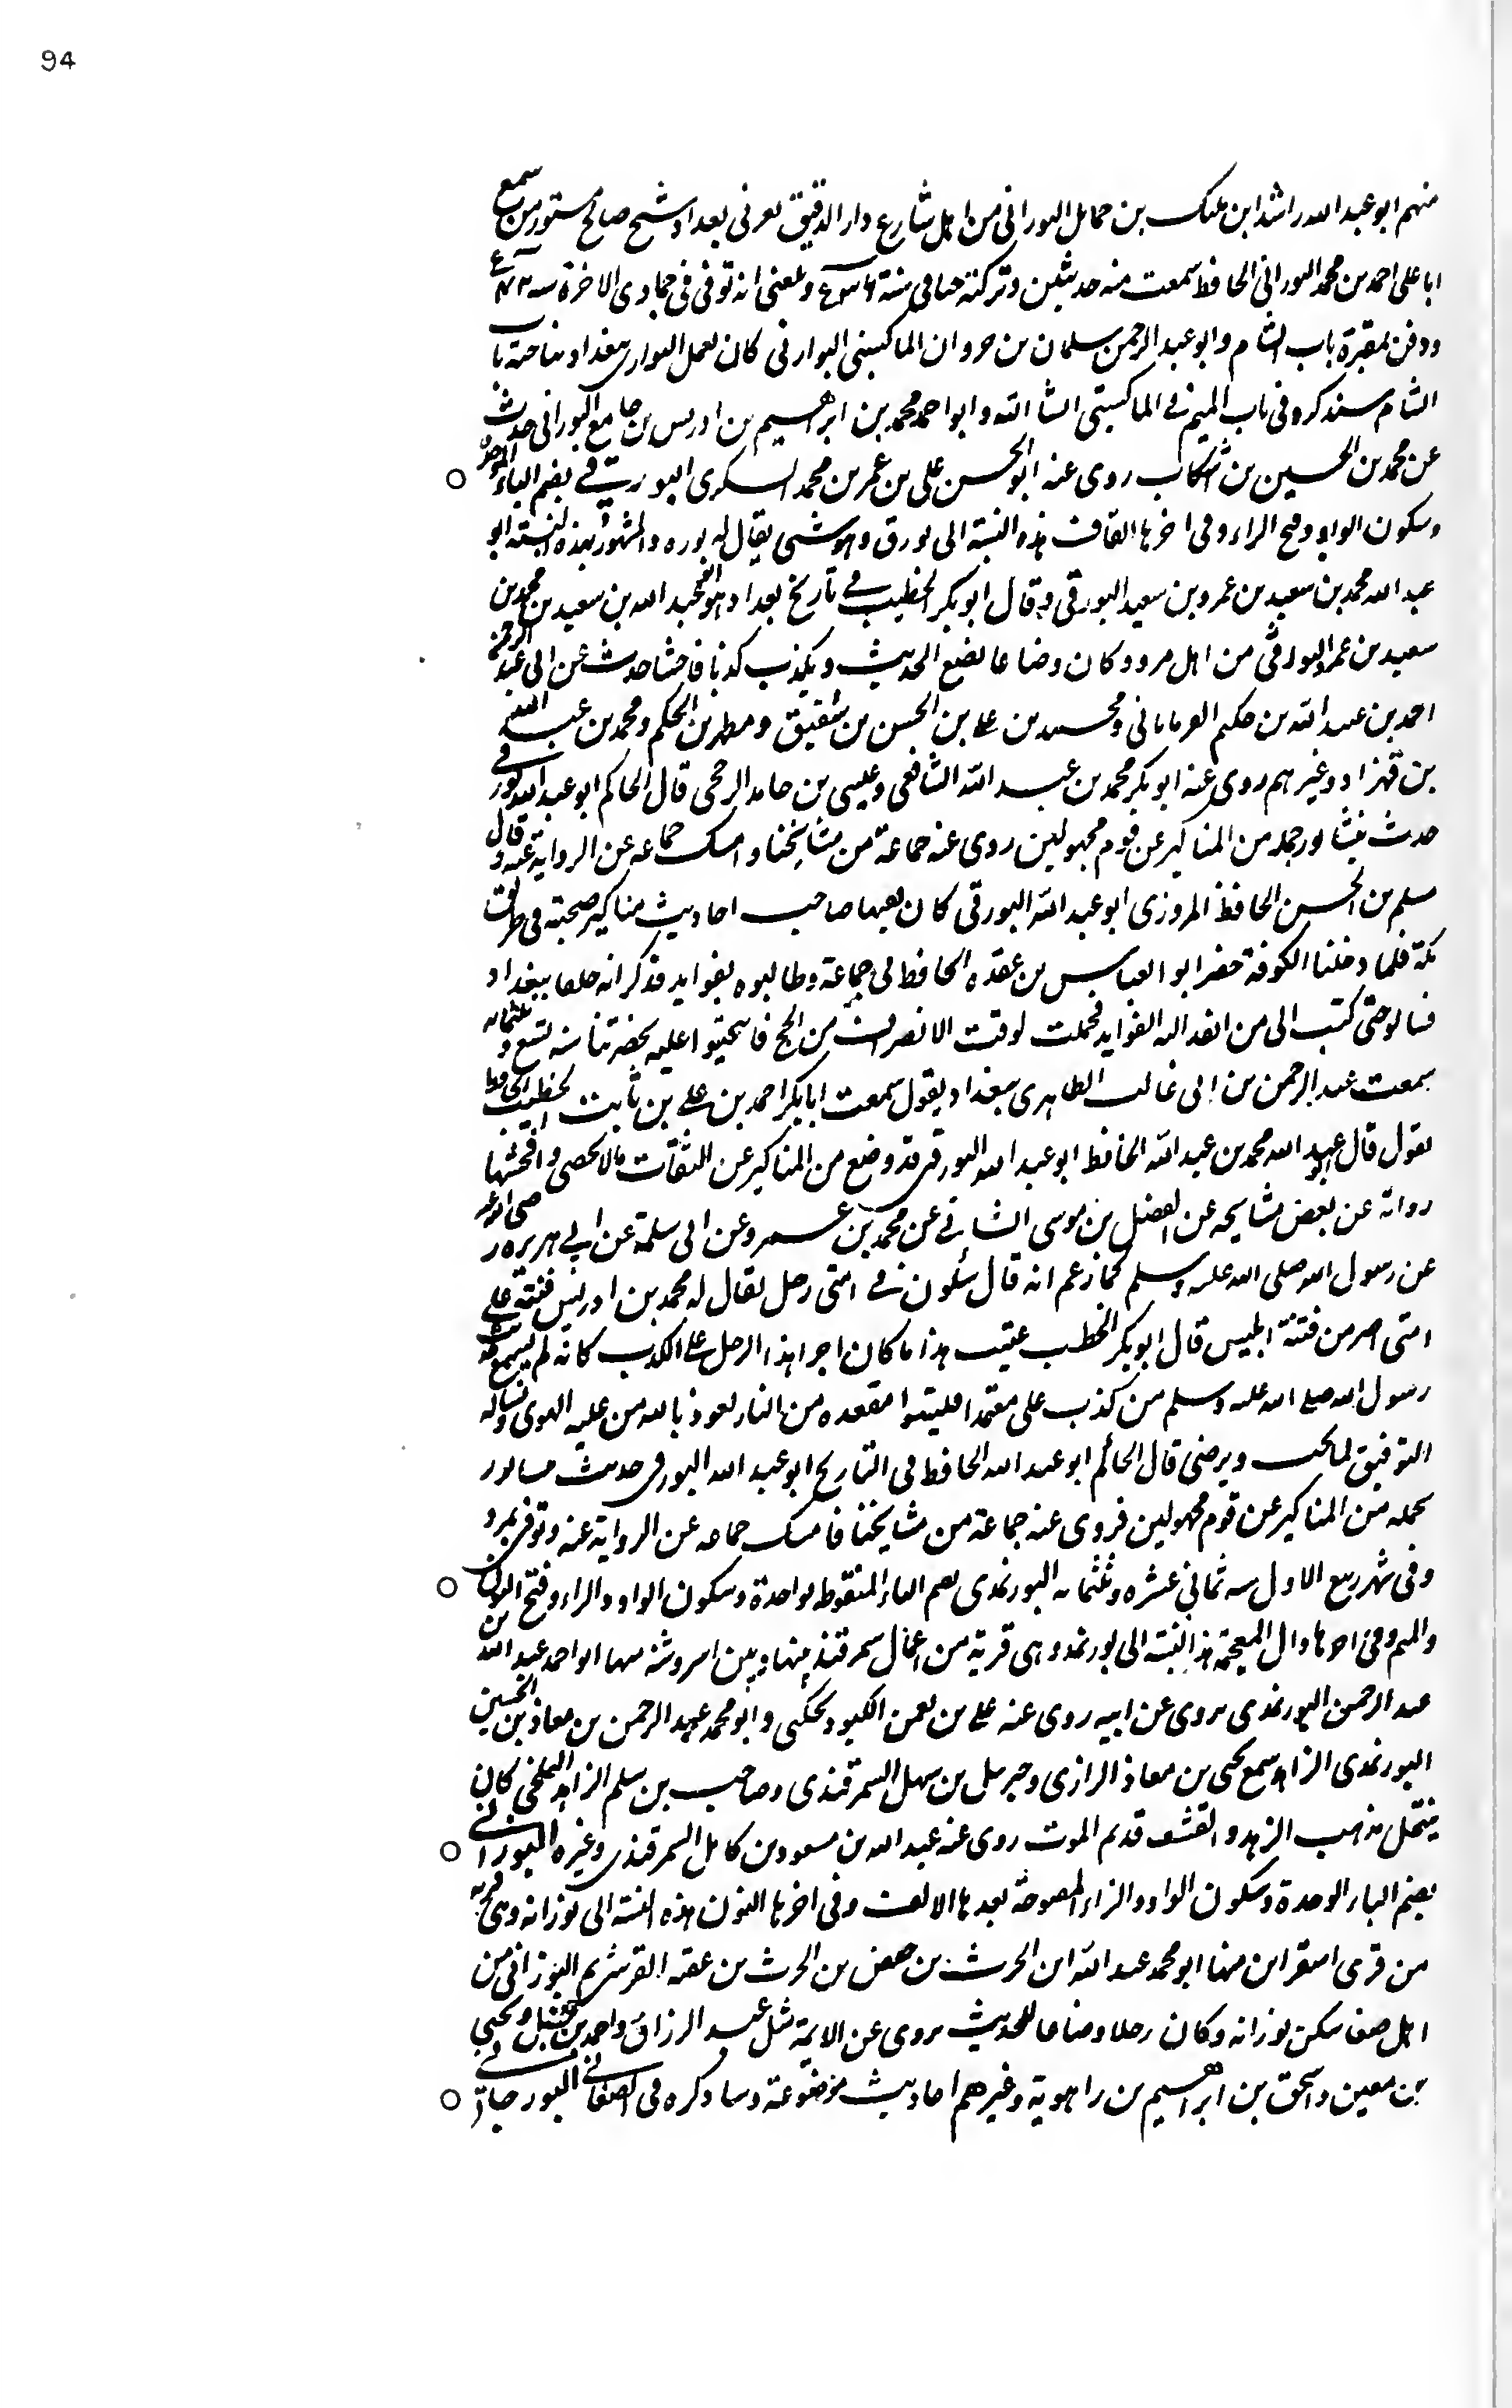 94
منهم ابو عبد الله راشد ابن ملك بن حمايل البوراني من اهل شارع دار الدقيق بغربي بغداد شيخ صالح مستور من سمع
ابا علي احمد بن محمد البوراني الحافظ سمعت منه حديثين وتركته حيا في سنة وبلغني انه توفي في جمادى الاخرة سنه
ودفن بمقبرة باب الشام وابو عبد الرحمن سلمان بن مروان الماكسيني البوارني كان يعمل البواري ببغداد بناحية باب
الشام سنذكره في باب الميم في الماكسيني ان شا الله وابو احمد محمد بن ابرهيم بن ادريس بن جامع البوراني حدث
عن محمد بن الحسين بن اشكاب روى عنه ابو الحسن علي بن عمر بن محمد السكرى البورقي بضم الباء الموحدة
وسكون الواو وفتح الراء وفي اخرها القاف هذه النسبة الى بورق وهو شى يقال له بوره والمشهور بهذه النسبة ابو
عبد الله محمد بن سعيد بن عمرو بن سعيد البورقي وقال ابو بكر الخطيب في تاريخ بغداد هو ابو عبد الله بن سعيد بن محمد بن
سعيد بن عمرو البورقي من اهل مرو وكان وضاعا يضع الحديث ويكذب كذبا فاحشا حدث عن ابي عبد الرحمن
احمد بن عبد الله بن حكيم الفرياناني ومحمد بن علي بن الحسن بن شقيق ومطهر بن الحكم ومحمد بن عبد الله
بن قهزاد وغيرهم روى عنه ابو بكر محمد بن عبد الله الشافعي وعيسى بن حامد الرخجي قال الحاكم ابو عبد الله البورقي
حدث بنيسابور بجمله من المناكير عن قوم مجهولين روى عنه جماعة من مشايخنا وامسك جماعه عن الرواية عنه وقال
مسلم بن الحسن الحافظ المروزي ابو عبد الله البورقي كان فقيها صاحب احاديث مناكير صحبته في طريق
مكة فلما دخلنا الكوفة حضر ابو العباس بن عقده الحافظ في جماعة وطالبوه بفوايد فذكر انه خلفها ببغداد
فسالوه حتى كتب الى من انفد اليه الفوايد فحملت لوقت الانصراف من الحج فانتخبوا عليه بحضرتنا سنة تسع وثلثمائه
سمعت عبد الرحمن بن ابي غالب الطاهرى ببغداد يقول سمعت ابا بكر احمد بن علي بن ثابت الخطيب الحافظ
يقول قال ابو عبد الله محمد بن عبد الله الحافظ ابو عبد الله البورقي قد وضع من المناكير عن الثقات مالا يحصى وافحشها
روايته عن بعض مشايخه عن الفضل بن موسى السيناني عن محمد بن عمرو عن ابي سلمة عن ابي هريره رضي الله عنه
عن رسول الله صلى الله عليه وسلم كما زعم انه قال سيكون في امتي رجل يقال له محمد بن ادريس فتنته على
امتي اضر من فتنة ابليس قال ابو بكر الخطيب عقيب هذا ما كان اجرا هذا الرجل على الكذب كانه لم يسمع حديث
رسول الله صلى الله عليه وسلم من كذب علي متعمدا فليتبوا مقعده من النار نعوذ بالله من غلبه الهوى ونساله
التوفيق لما يحب ويرضى قال الحاكم ابو عبد الله الحافظ في التاريخ ابو عبد الله البورقي حدث بنيسابور
بجمله من المناكير عن قوم مجهولين فروى عنه جماعة من مشايخنا فامسك جماعه عن الرواية عنه وتوفي بمرو
وفي شهر ربيع الاول سنه ثماني عشره وثلثمايه البورنمذى بضم الباء المنقوطه بواحدة وسكون الواو والراء وفتح النون
والميم وفي اخرها دال المعجمة هذه النسبة الى بورنمد وهي قرية من اعمال سمرقند بينها وبين اسروشنه منها ابو احمد عبد الله بن
عبد الرحمن البورنمذى يروى عن ابيه روى عنه علي بن نعمن الكبوذنجكثي وابو محمد عبد الرحمن بن معاذ بن الحسين
البورنمذى الزاهد سمع يحيى بن معاذ الرازي وجبريل بن سهل السمرقندي وصاحب بن سلم الزاهد البلخي كان
ينتحل مذهب الزهد والتقشف قديم الموت روى عنه عبد الله بن مسعود بن كامل السمرقندى وغيره البوزاني
بضم الباء الموحدة وسكون الواو والزاء المفتوحة بعدها الالف وفي اخرها النون هذه النسبة الى بوزانه وهي قريه
من قرى اسفراين منها ابو محمد عبد الله ابن الحرث بن حفص بن الحرث بن عقبه القرشي البوزاني من
اهل صنعا سكن بوزانه وكان رجلا وضاعا للحديث يروى عن الايمة مثل عبد الرزاق واحمد بن حنبل ويحيى
بن معين واسحق بن ابرهيم بن راهوية وغيرهم احاديث موضوعة وساذكره في الصنعاني البوزجاني